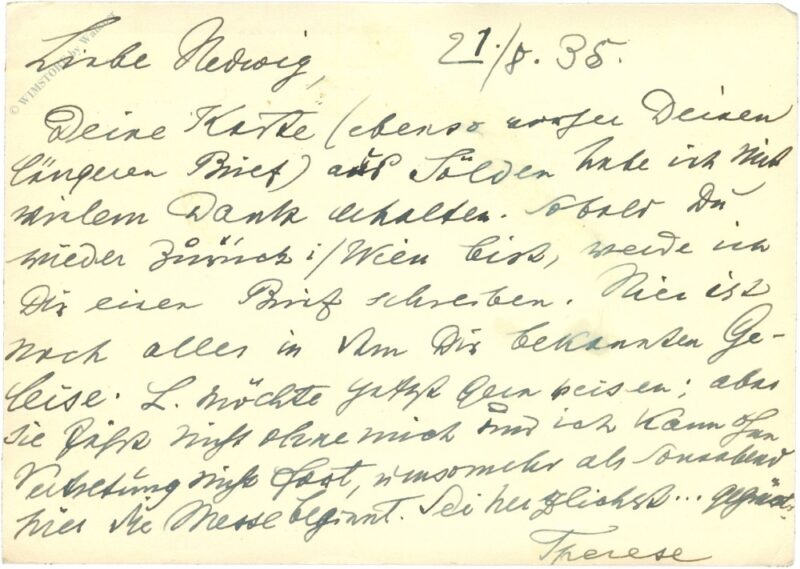 © WIMSTORE by Wam.or
21./8. 35.
Liebe Hedwig,
Deine Karte (ebenso vorher Deinen
längeren Brief) aus Sölden habe ich mit
vielem Dank erhalten. Sobald Du
wieder zurück i/Wien bist, werde ich
Dir einen Brief schreiben. Hier ist
noch alles in dem Dir bekannten Ge-
leise. L. möchte jetzt gern reisen; aber
sie fährt nicht ohne mich und ich kann ohne
Vertretung nicht fort, umsomehr als Sonnabend
hier die Messe beginnt. Sei herzlichst... gegrüsst.
Therese